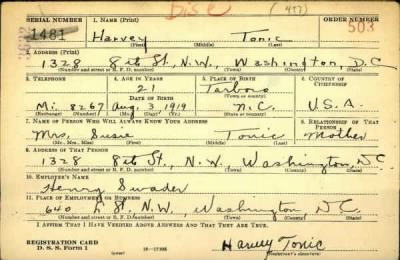 Disc (477)
SERIAL NUMBER 1. NAME (Print) ORDER NUMBER
1481 Harvey Tonic 503
(First) (Middle) (Last)
2. ADDRESS (Print)
1328 8th St., N.W., Washington, D.C.
(Number and street or R. F. D. number) (Town) (County) (State)
3. TELEPHONE 4. AGE IN YEARS 5. PLACE OF BIRTH 6. COUNTRY OF CITIZENSHIP
21 Tarboro
DATE OF BIRTH
Mi. 8267 Aug. 3 1919 N.C. U.S.A.
(Exchange) (Number) (Mo.) (Day) (Yr.) (State or country)
7. NAME OF PERSON WHO WILL ALWAYS KNOW YOUR ADDRESS 8. RELATIONSHIP OF THAT PERSON
Mrs. Susie Tonic Mother
(Mr., Mrs., Miss) (First) (Middle) (Last)
9. ADDRESS OF THAT PERSON
1328 8th St., N.W. Washington, D.C.
(Number and street or R. F. D. number) (Town) (County) (State)
10. EMPLOYER'S NAME
Henry Swader
11. PLACE OF EMPLOYMENT OR BUSINESS
640 St. N.W., Washington D.C.
(Number and street or R. F. D. number) (Town) (County) (State)
I AFFIRM THAT I HAVE VERIFIED ABOVE ANSWERS AND THAT THEY ARE TRUE.
REGISTRATION CARD
D. S. S. Form 1 Harvey Tonic
(Registrant's signature)